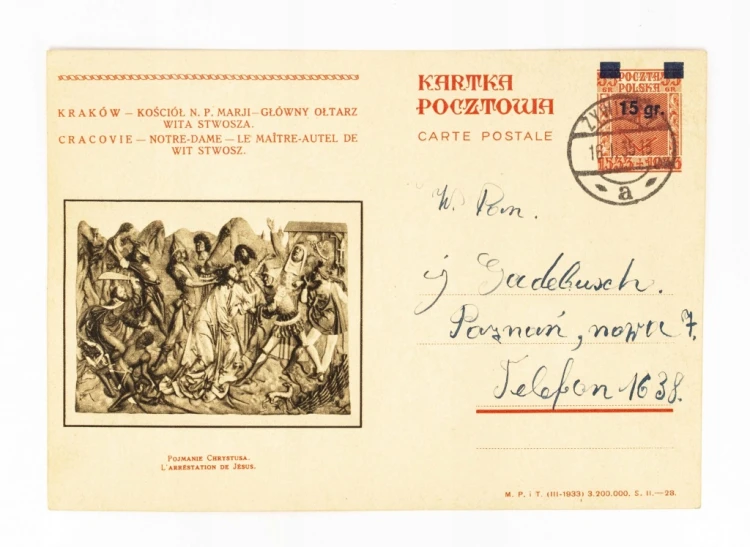 KRAKÓW — KOŚCIÓŁ N. P. MARJI — GŁÓWNY OŁTARZ
WITA STWOSZA.
CRACOVIE — NOTRE-DAME — LE MAÎTRE-AUTEL DE
WIT STWOSZ.
KARTKA
POCZTOWA
CARTE POSTALE
POCZTA
POLSKA
GR. GR.
15 gr.
a
W. Pan.
Gadebusch.
Poznań, nowa 7.
Telefon 1638.
POJMANIE CHRYSTUSA.
L'ARRESTATION DE JÉSUS.
M. P. i T. (III-1933) 3.200.000. S. II.—28.